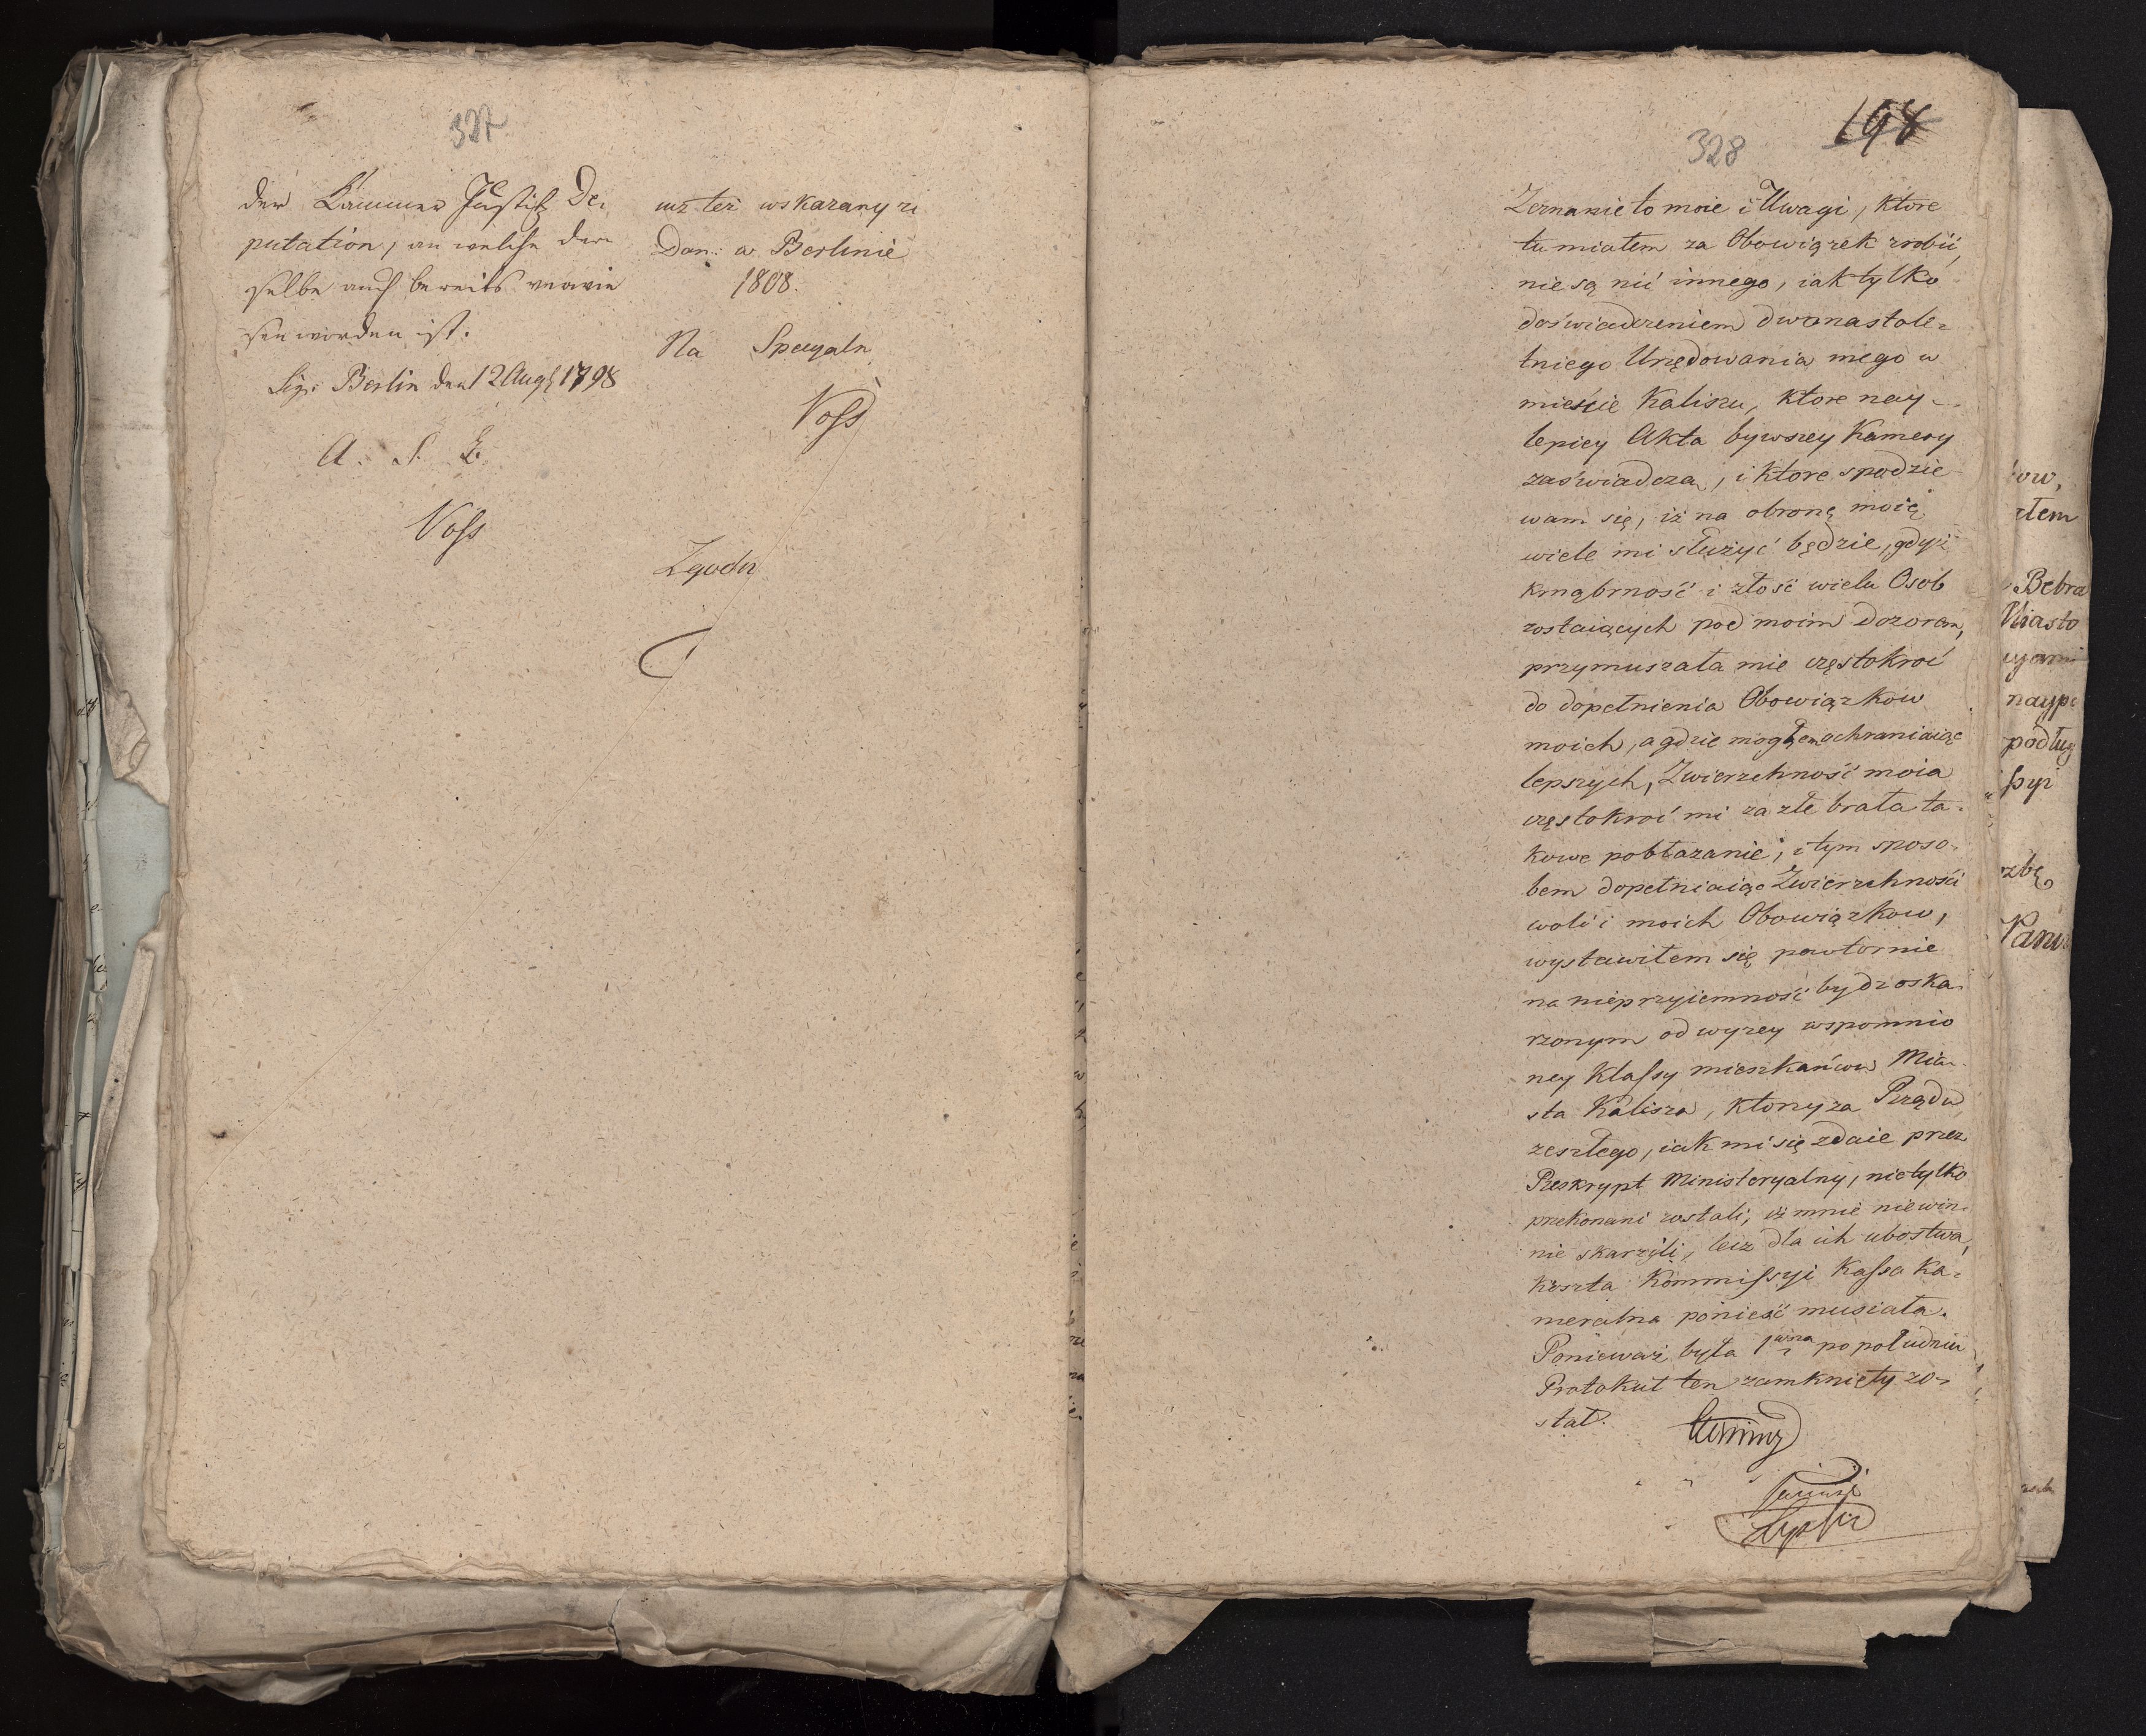 327
der Kammer Justitz De-
putation, an welche der-
selbe auch bereits verwie
sen worden ist.
Sig: Berlin den 12 Aug 1798
A. S. B.
Voss
iuż też wskazany
Dan: w Berlinie
1808.
Na Specyaln
Voss
Zgoda
198
328
Zeznanie to moie i Uwagi, ktore
tu miałem za Obowiązek zrobić,
nie są nić innego, iak tylko
doświadczeniem dwonastole-
tniego Urzędowania mego w
mieście Kaliszu, ktore nay-
lepiey Akta bywszey Kamery
zaświadczą, i ktore spodzie
wam się, iż na obronę moię
wiele mi służyć będzie, gdyż
krnąbrność i złość wielu Osob
zostaiących pod moim dozorem,
przymuszała mie częstokroć
do dopełnienia Obowiązkow
moich, a gdzie mogłem ochraniaiąc
lepszych, Zwierzchność moia
częstokroć mi za złe brała ta-
kowe pobłażanie, i tym sposo-
bem dopełniaiąc Zwierzchności
woli i moich Obowiązkow,
wystawiłem się powtornie
na nieprzyiemność bydz oska-
rzonym od wyżey wspomnio
ney Klassy mieszkańcow Mia-
sta Kalisza, ktorzy za Rządu
zeszłego, iak mi się zdaie przez
Reskrypt Ministeryalny, nietylko
przekonani zostali, iż mnie niewin-
nie skarżyli, lecz dla ich ubostwa
koszta Kommissyi Kassa Ka-
meralna ponieść musiała.
Ponieważ była 1wsza po południu
Protokuł ten zamknięty zo-
stał.
ow,
łem
Bebra
Miasto
naype
podług
ssyi
zbę